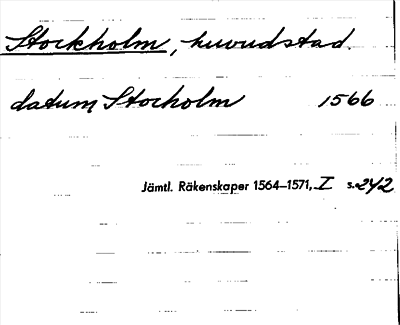 Stockholm, huvudstad.
datum Stocholm 1566
Jämtl. Räkenskaper 1564–1571, I s. 242